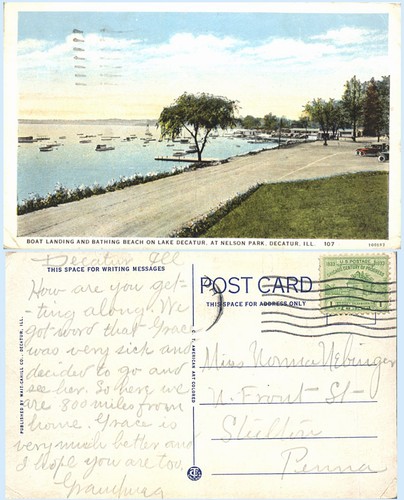 BOAT LANDING AND BATHING BEACH ON LAKE DECATUR, AT NELSON PARK, DECATUR, ILL. 107
Decatur Ill
THIS SPACE FOR WRITING MESSAGES
How are you get-
ting along. We
got word that Grace
was very sick and
decided to go and
see her. So here we
are 800 miles from
home. Grace is
very much better and
I hope you are too.
Grandma
PUBLISHED BY WAIT-CAHILL CO., DECATUR, ILL.
C. T. AMERICAN ART COLORED
POST CARD
THIS SPACE FOR ADDRESS ONLY
U.S. POSTAGE
CENTURY OF PROGRESS
Miss Norma Nebinger
N. Front St
Steelton
Penna